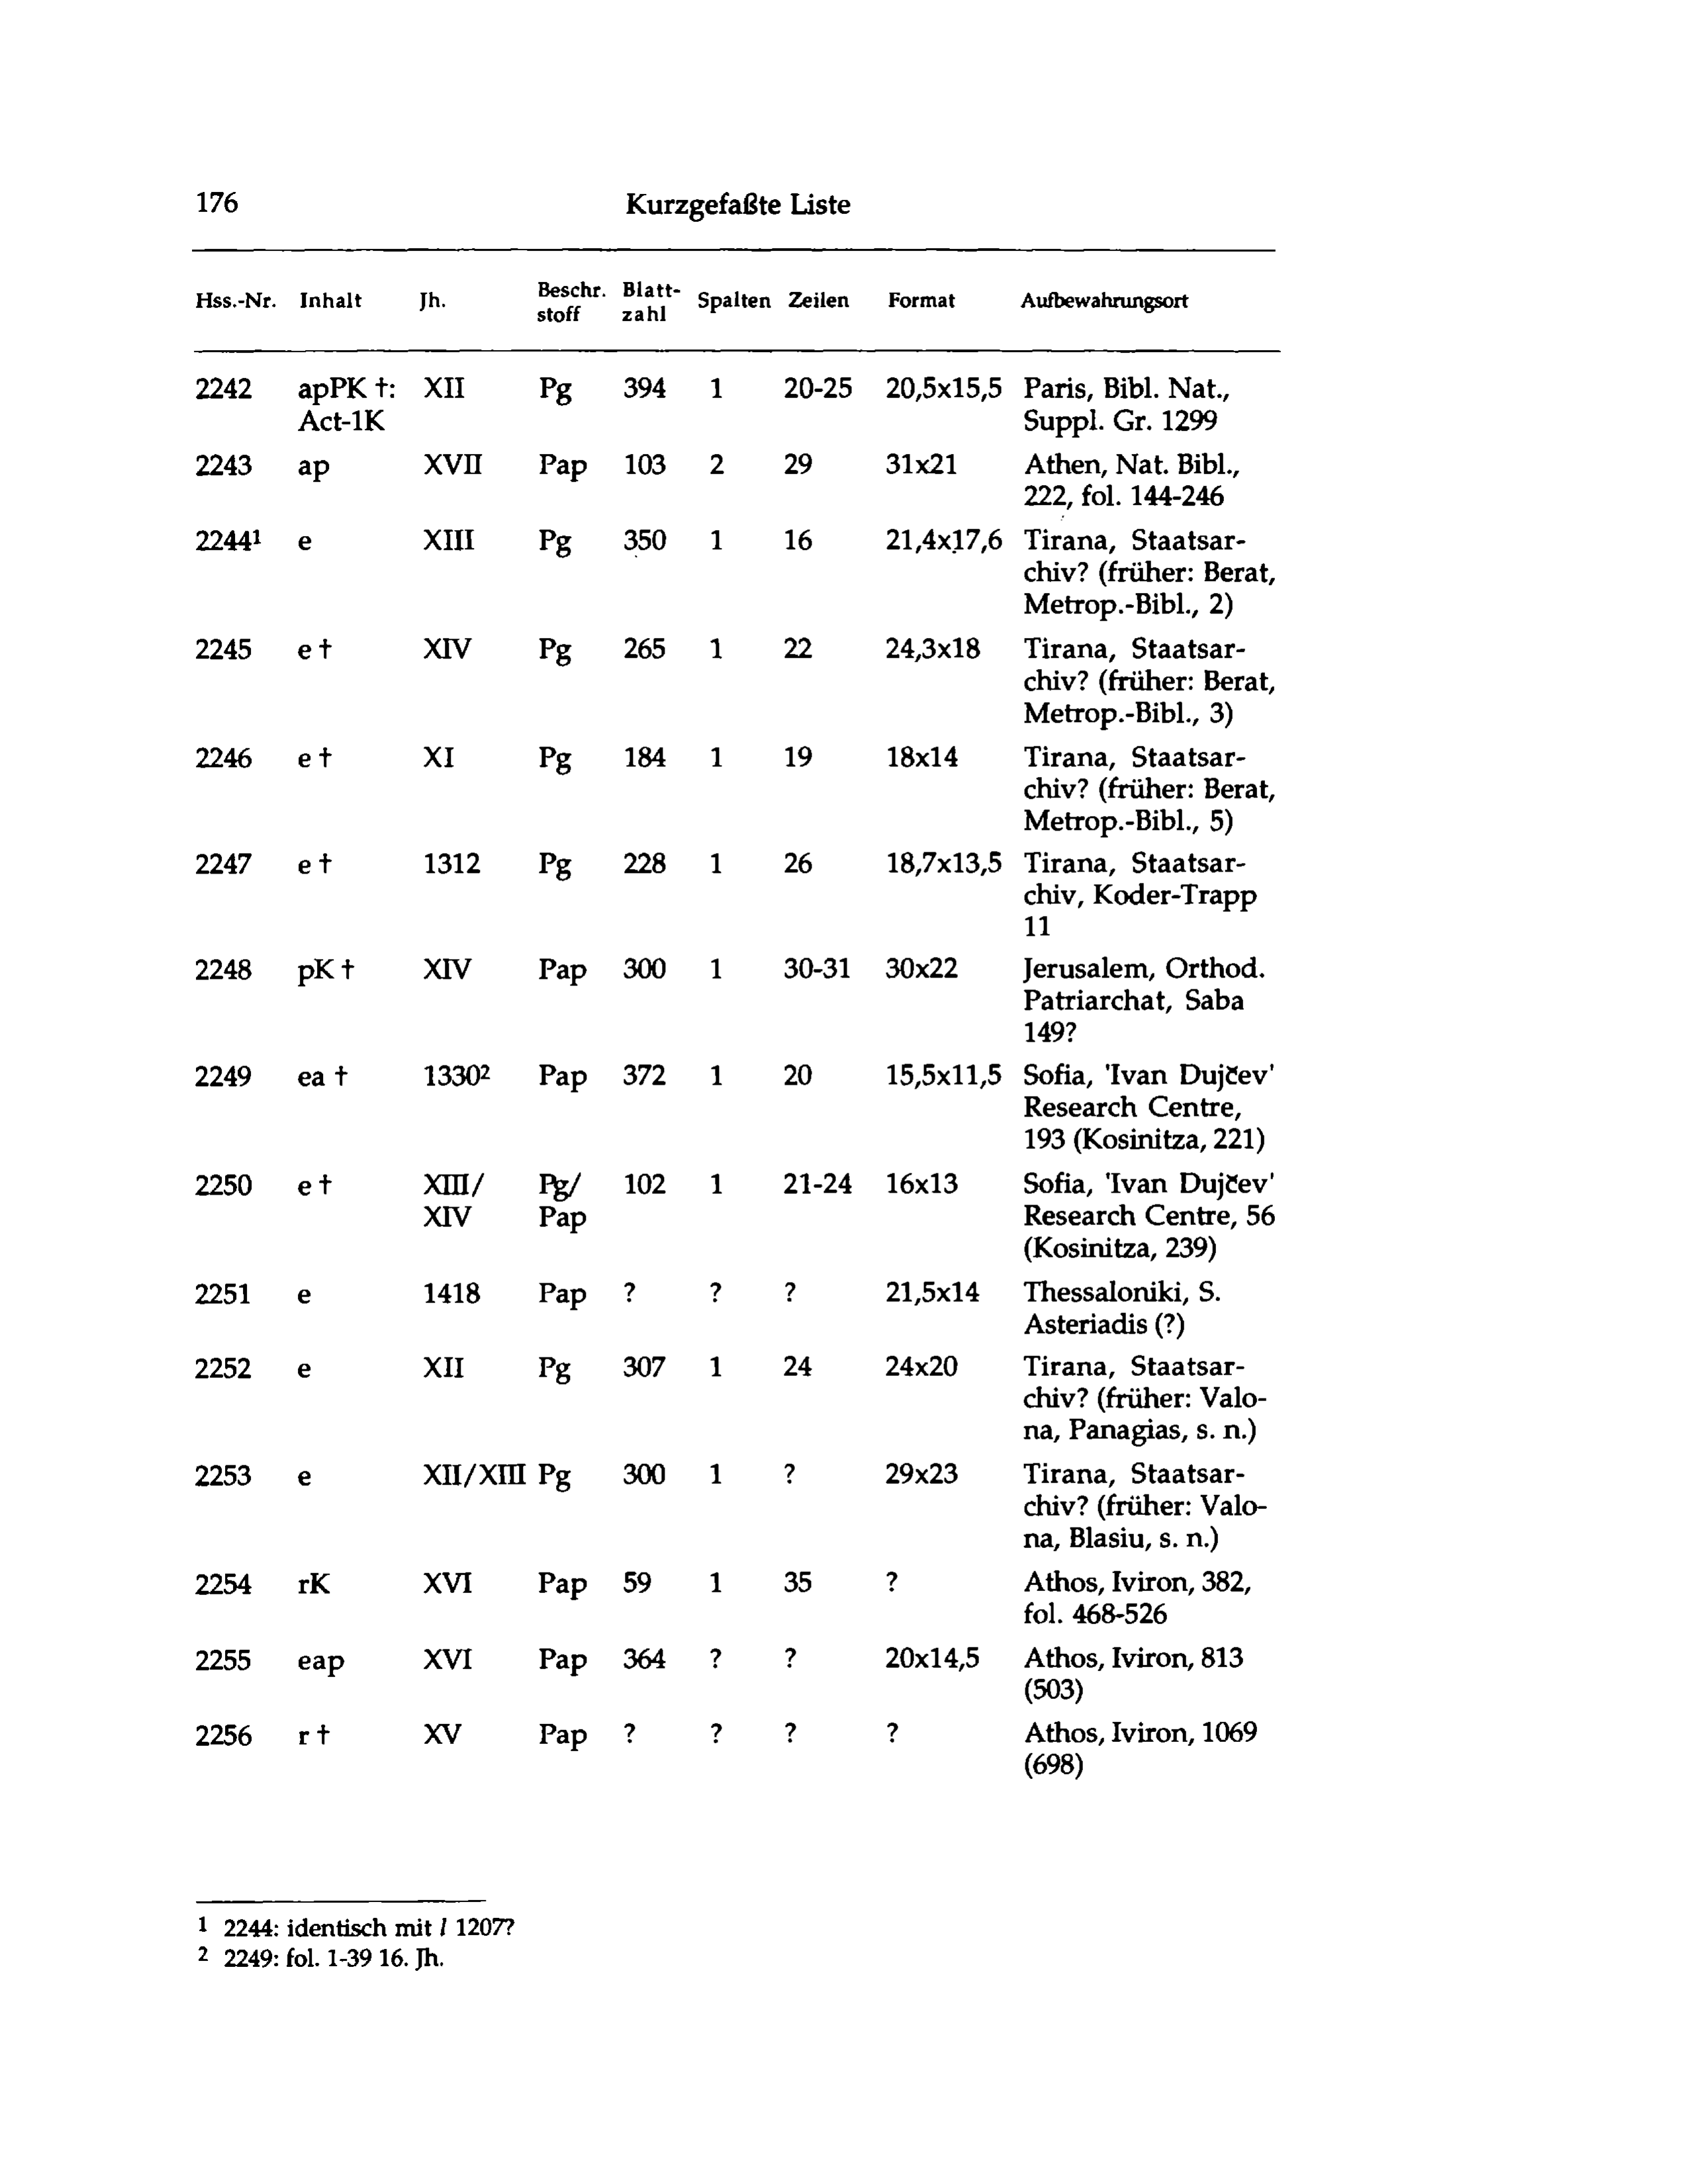 176 Kurzgefaßte Liste
Hss.-Nr. Inhalt Jh. Beschr. stoff Blatt- zahl Spalten Zeilen Format Aufbewahrungsort
2242 apPK †: XII Pg 394 1 20-25 20,5x15,5 Paris, Bibl. Nat.,
Act-1K Suppl. Gr. 1299
2243 ap XVII Pap 103 2 29 31x21 Athen, Nat. Bibl.,
222, fol. 144-246
2244¹ e XIII Pg 350 1 16 21,4x17,6 Tirana, Staatsar-
chiv? (früher: Berat,
Metrop.-Bibl., 2)
2245 e † XIV Pg 265 1 22 24,3x18 Tirana, Staatsar-
chiv? (früher: Berat,
Metrop.-Bibl., 3)
2246 e † XI Pg 184 1 19 18x14 Tirana, Staatsar-
chiv? (früher: Berat,
Metrop.-Bibl., 5)
2247 e † 1312 Pg 228 1 26 18,7x13,5 Tirana, Staatsar-
chiv, Koder-Trapp
11
2248 pK † XIV Pap 300 1 30-31 30x22 Jerusalem, Orthod.
Patriarchat, Saba
149?
2249 ea † 1330² Pap 372 1 20 15,5x11,5 Sofia, 'Ivan Dujčev'
Research Centre,
193 (Kosinitza, 221)
2250 e † XIII/ Pg/ 102 1 21-24 16x13 Sofia, 'Ivan Dujčev'
XIV Pap Research Centre, 56
(Kosinitza, 239)
2251 e 1418 Pap ? ? ? 21,5x14 Thessaloniki, S.
Asteriadis (?)
2252 e XII Pg 307 1 24 24x20 Tirana, Staatsar-
chiv? (früher: Valo-
na, Panagias, s. n.)
2253 e XII/XIII Pg 300 1 ? 29x23 Tirana, Staatsar-
chiv? (früher: Valo-
na, Blasiu, s. n.)
2254 rK XVI Pap 59 1 35 ? Athos, Iviron, 382,
fol. 468-526
2255 eap XVI Pap 364 ? ? 20x14,5 Athos, Iviron, 813
(503)
2256 r † XV Pap ? ? ? ? Athos, Iviron, 1069
(698)
1 2244: identisch mit l 1207?
2 2249: fol. 1-39 16. Jh.